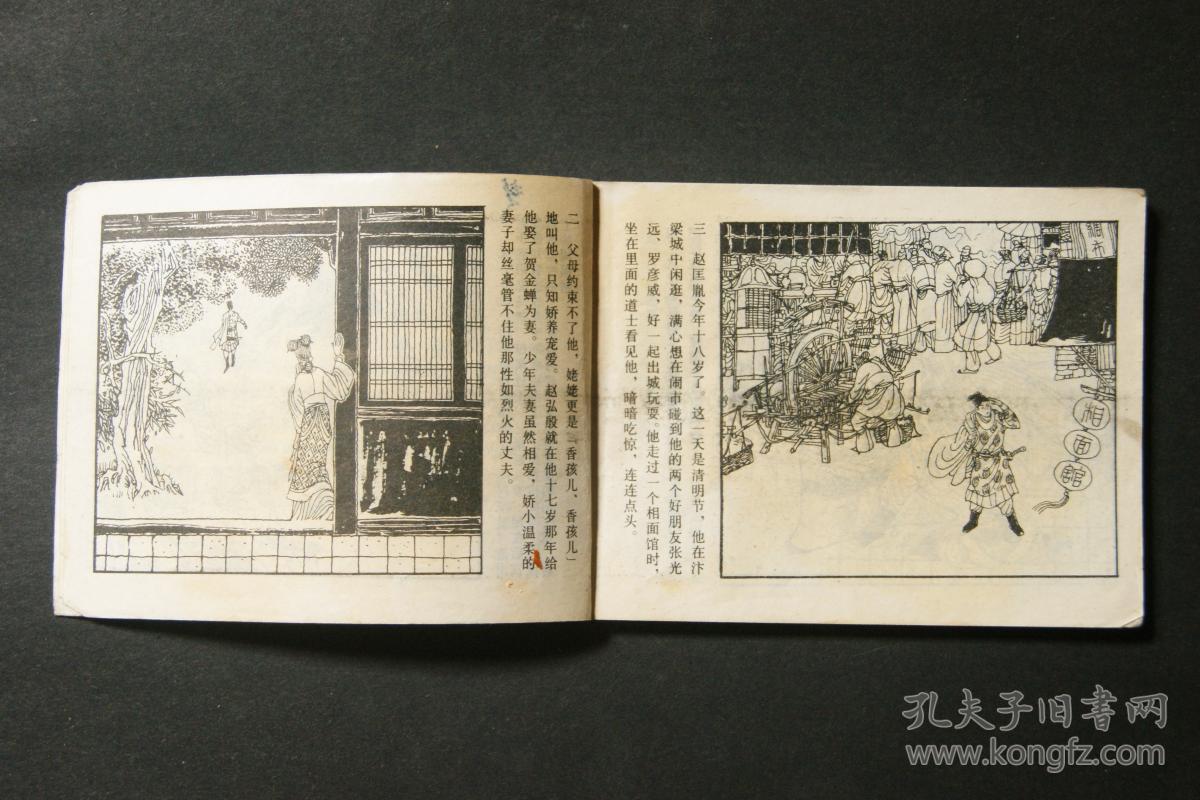 二　父母约束不了他，姥姥更是“香孩儿、香孩儿”
地叫他，只知娇养宠爱。赵弘殷就在他十七岁那年给
他娶了贺金蝉为妻。少年夫妻虽然相爱，娇小温柔的
妻子却丝毫管不住他那性如烈火的丈夫。
三　赵匡胤今年十八岁了。这一天是清明节，他在汴
梁城中闲逛，满心想在闹市碰到他的两个好朋友张光
远、罗彦威，好一起出城玩耍。他走过一个相面馆时，
坐在里面的道士看见他，暗暗吃惊，连连点头。
相面館
孔夫子旧书网
www.kongfz.com